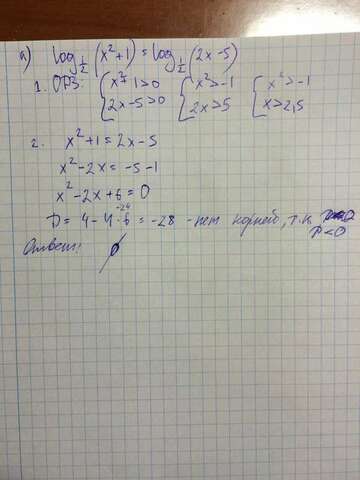 а) log_{1/2}(x²+1) = log_{1/2}(2x-5)
1. ОДЗ: { x²+1>0 { x²>-1 { x²>-1
2x-5>0 2x>5 x>2,5
2. x²+1=2x-5
x²-2x=-5-1
x²-2x+6=0
-24
D= 4-4·6 = -28 - нет корней, т.к
D<0
Ответ: ∅